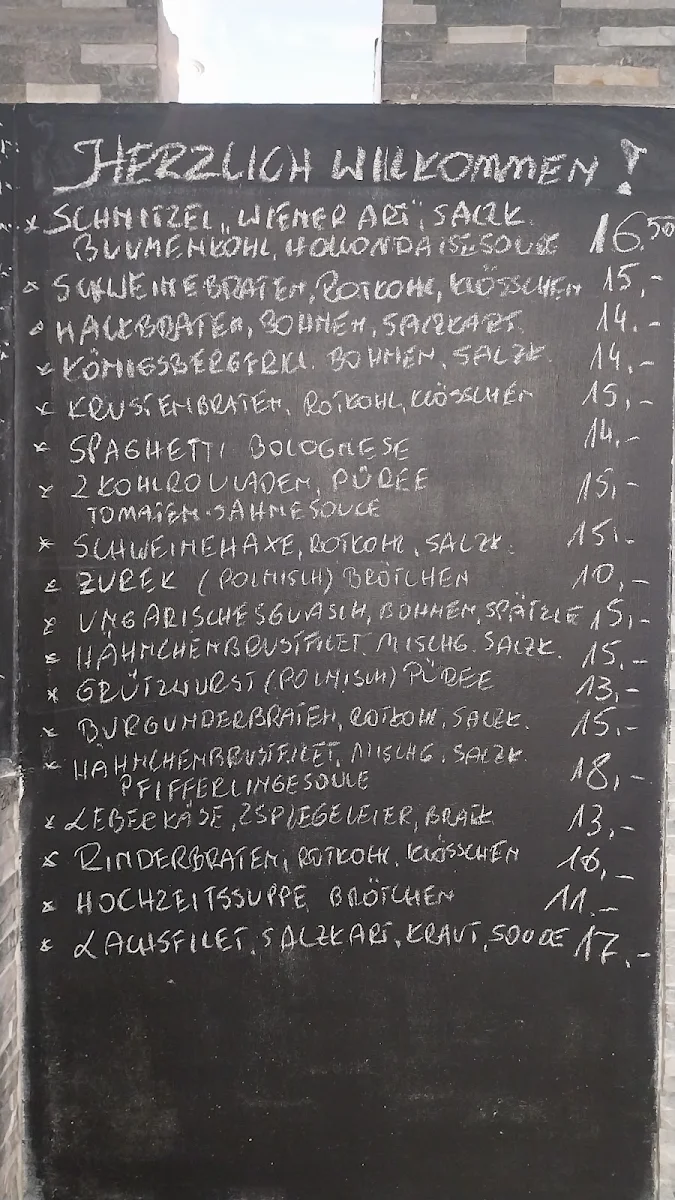 HERZLICH WILLKOMMEN!
* SCHNITZEL „WIENER ART", SALZK. 16.50
BLUMENKOHL, HOLLONDAISESOUCE
* SCHWEINEBRATEN, ROTKOHL, KLÖSSCHEN 15,-
* HACKBRATEN, BOHNEN, SALZKART. 14.-
* KÖNIGSBERGERKL. BOHNEN, SALZK. 14,-
* KRUSTENBRATEN, ROTKOHL, KLÖSSCHEN 15,-
* SPAGHETTI BOLOGNESE 14.-
* 2 KOHLROULADEN, PÜREE 15,-
TOMATEN-SAHNESOUCE
* SCHWEINEHAXE, ROTKOHL, SALZK. 15.-
* ZUREK (POLNISCH) BRÖTCHEN 10,-
* UNGARISCHESGULASCH, BOHNEN, SPÄTZLE 15,-
* HÄHNCHENBRUSTFILET, MISCHG. SALZK. 15.-
* GRÜTZWURST (POLNISCH) PÜREE 13,-
* BURGUNDERBRATEN, ROTKOHL, SALZK. 15.-
* HÄHNCHENBRUSTFILET, MISCHG. SALZK. 18,-
PFIFFERLINGESOUCE
* LEBERKÄSE, 2SPIEGELEIER, BRATK. 13,-
* RINDERBRATEN, ROTKOHL, KLÖSSCHEN 16,-
* HOCHZEITSSUPPE BRÖTCHEN 11.-
* LACHSFILET, SALZKART, KRAUT, SOUCE 17.-